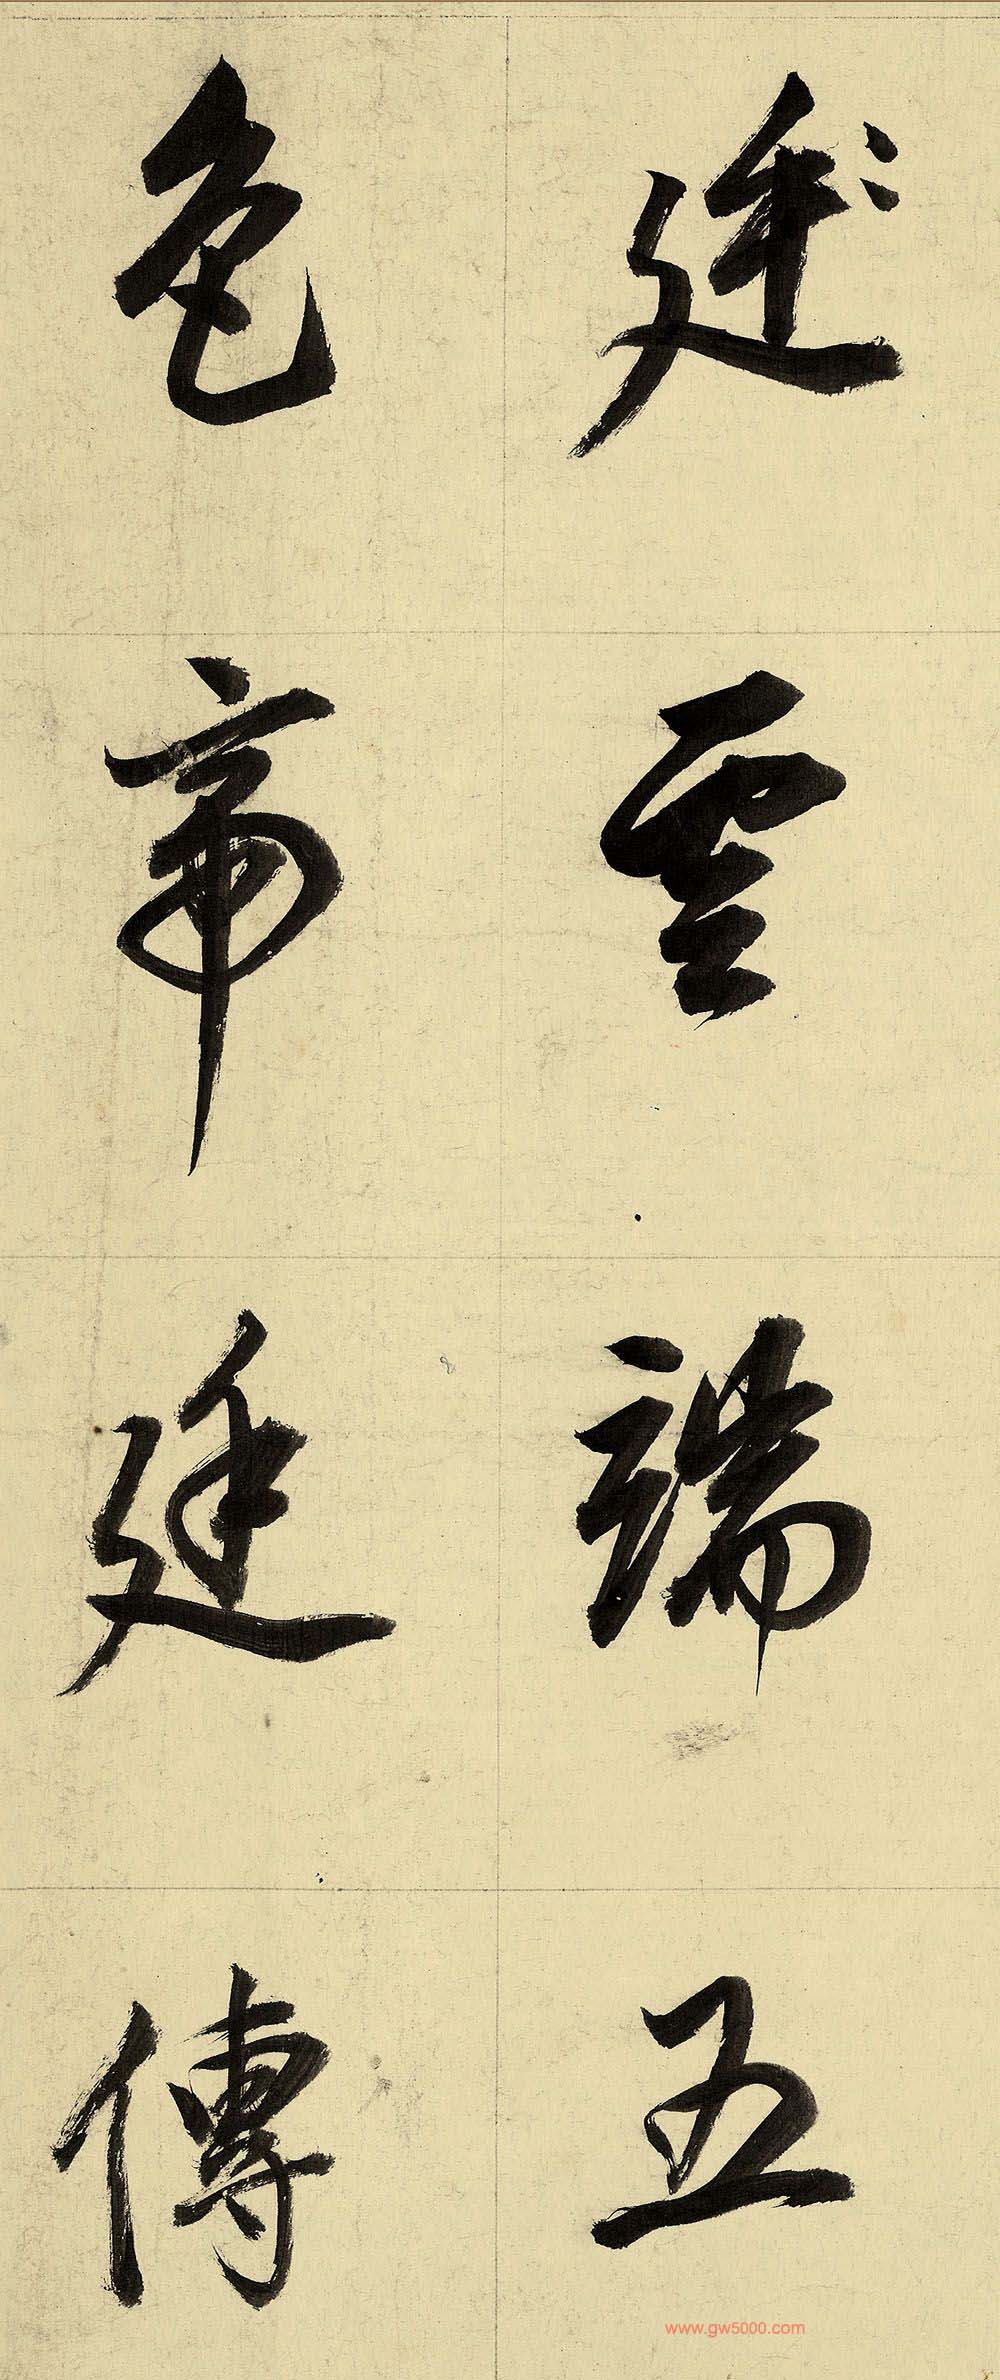 廷雲端五
色帝廷傳
www.gw5000.com